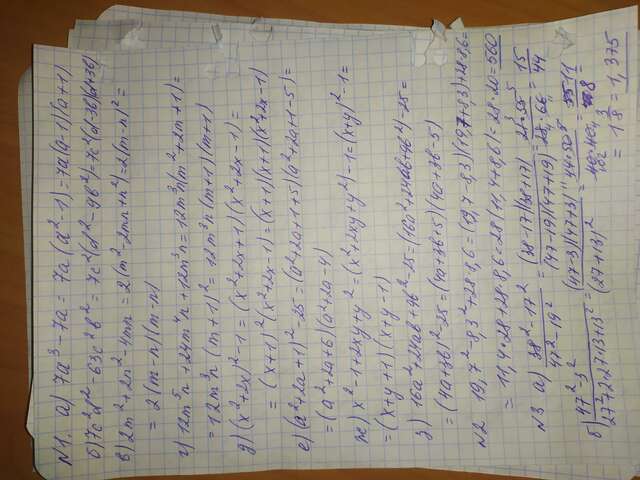 N1. а) 7a³-7a = 7a(a²-1) = 7a(a-1)(a+1)
б) 7c²d²-63c²b² = 7c²(d²-9b²) = 7c²(d-3b)(d+3b)
в) 2m²+2n²-4mn = 2(m²-2mn+n²) = 2(m-n)² =
= 2(m-n)(m-n)
г) 12m⁵n+24m⁴n+12m³n = 12m³n(m²+2m+1) =
= 12m³n(m+1)² = 12m³n(m+1)(m+1)
д) (x²+2x)²-1 = (x²+2x+1)(x²+2x-1) =
= (x+1)²(x²+2x-1) = (x+1)(x+1)(x²+2x-1)
е) (a²+2a+1)²-25 = (a²+2a+1+5)(a²+2a+1-5) =
= (a²+2a+6)(a²+2a-4)
ж) x²-1+2xy+y² = (x²+2xy+y²)-1 = (x+y)²-1 =
= (x+y+1)(x+y-1)
з) 16a²+24ab+9b²-25 = (16a²+24ab+9b²)-25 =
= (4a+3b)²-25 = (4a+3b+5)(4a+3b-5)
N2 19,7²-8,3²+28·8,6 = (19,7-8,3)(19,7+8,3)+28·8,6 =
= 11,4·28+28·8,6 = 28(11,4+8,6) = 28·20 = 560
N3 а) 38²-17² / 47²-19² = (38-17)(38+17) / (47-19)(47+19) = 21·55 / 28·66 = 15 / 44
б) 47²-3² / 27²+2·27·13+13² = (47-3)(47+3) / (27+13)² = 44·50 / 40·40 = 11 / 8 =
= 1 3/8 = 1,375